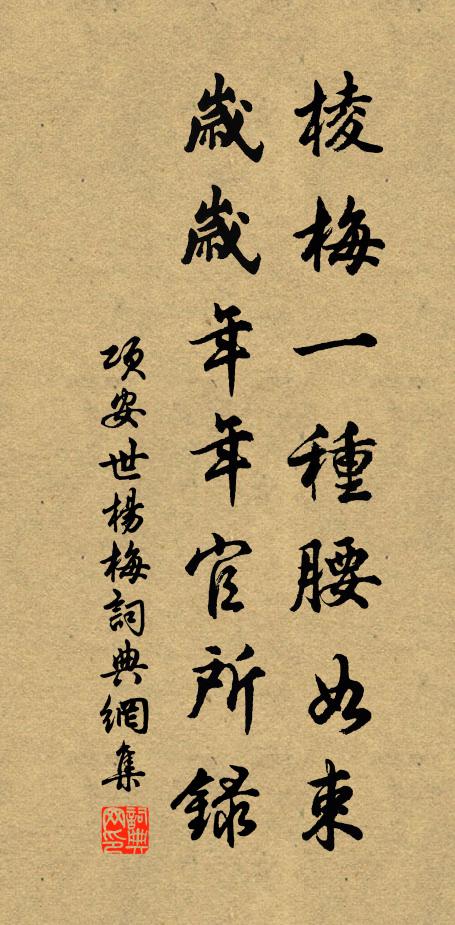 棱梅一種腰如束
歲歲年年官所錄
項安世楊梅詞典網集
詞典网印